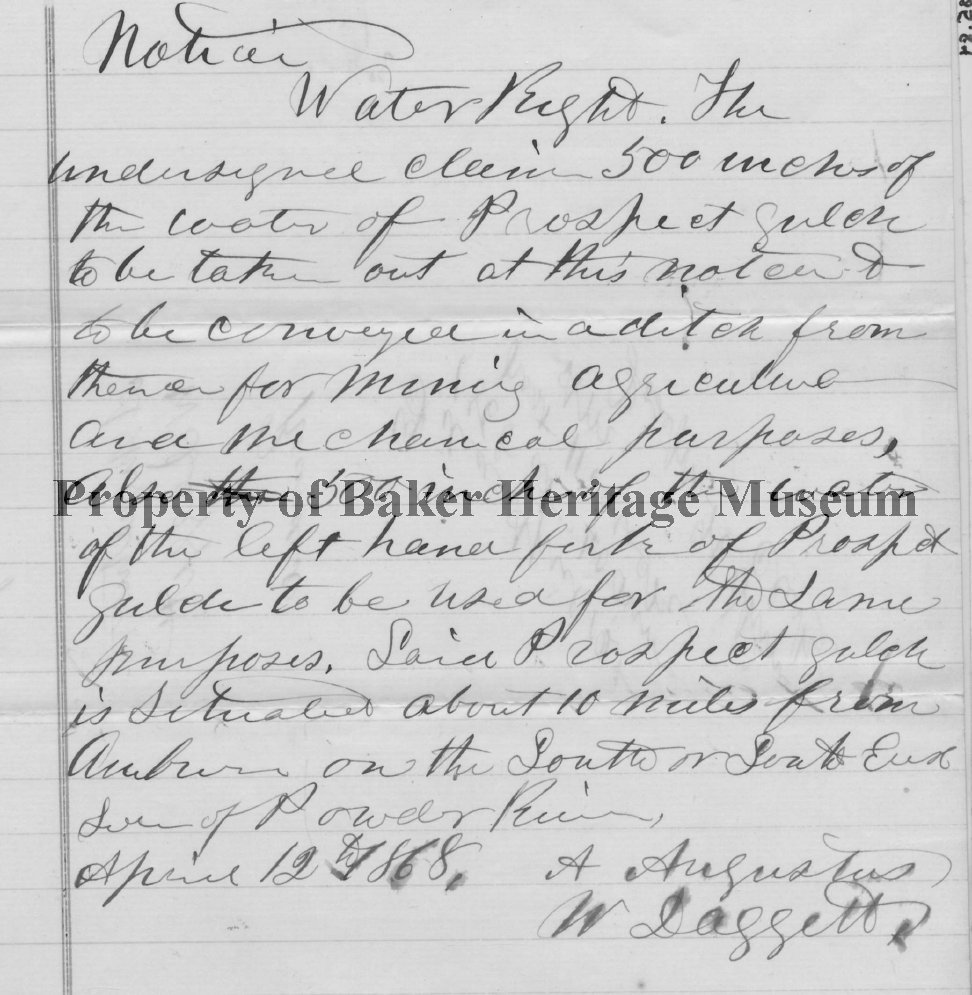 Notice
Water Right. The
undersigned claim 500 inches of
the water of Prospect gulch
to be taken out at this notice &
to be conveyed in a ditch from
thence for Mining agriculture
and mechanical purposes,
Also the 500 inches of the water
Property of Baker Heritage Museum
of the left hand fork of Prospect
gulch to be used for the same
purposes. Said Prospect gulch
is situated about 10 miles from
Auburn on the South or South East
side of Powder River,
April 12th 1868. A Augustus
W Daggett